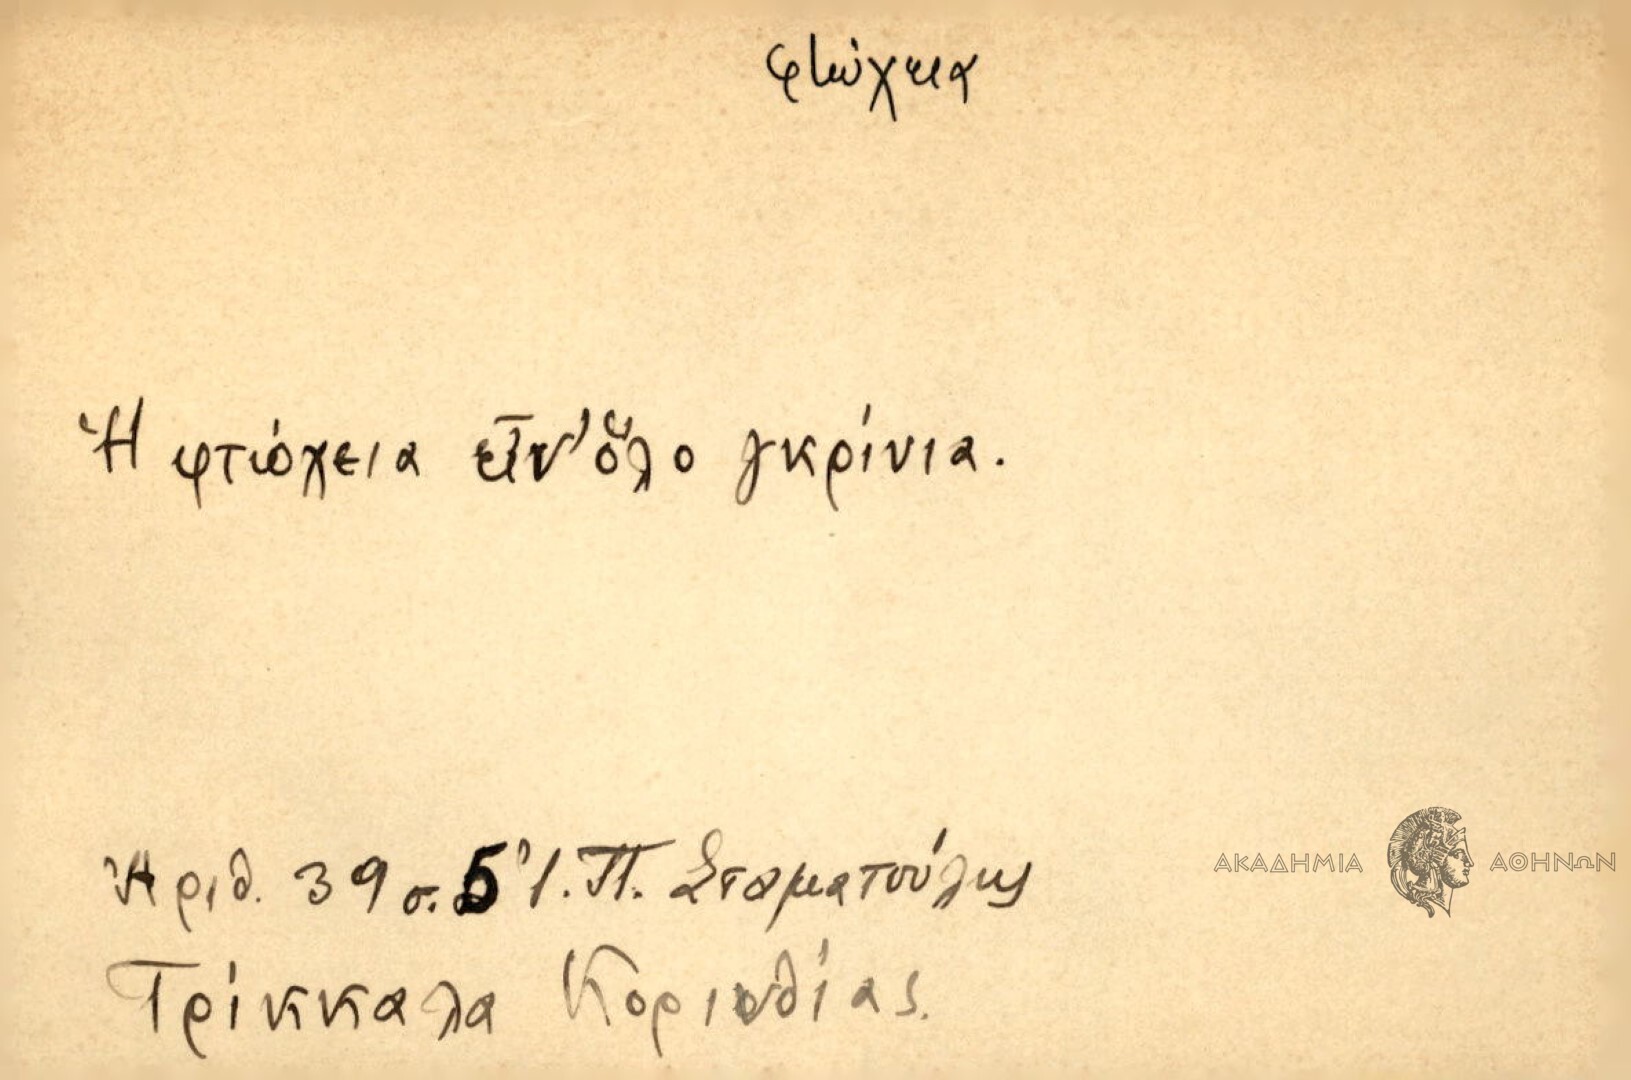 φτώχεια
Ἡ φτώχεια εἶν' ὅλο γκρίνια.
Ἀριθ. 39 σ. 5 Ἰ. Π. Σταματούλης
ΑΚΑΔΗΜΙΑ ΑΘΗΝΩΝ
Τρίκκαλα Κορινθίας.